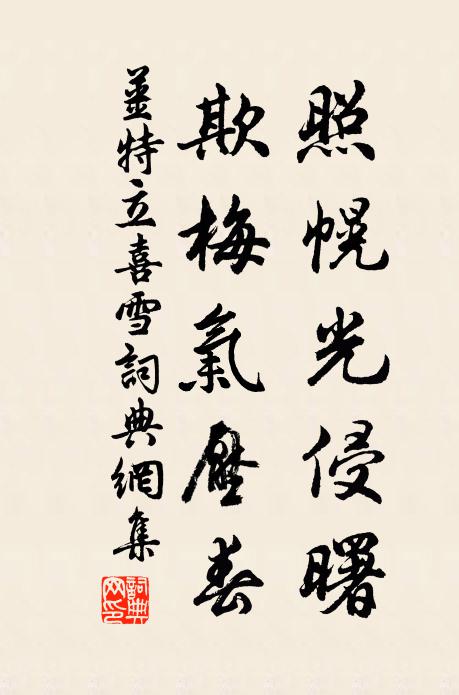 照幌光侵曙
欺梅氣壓春
姜特立喜雪詞典網集
詞典網印